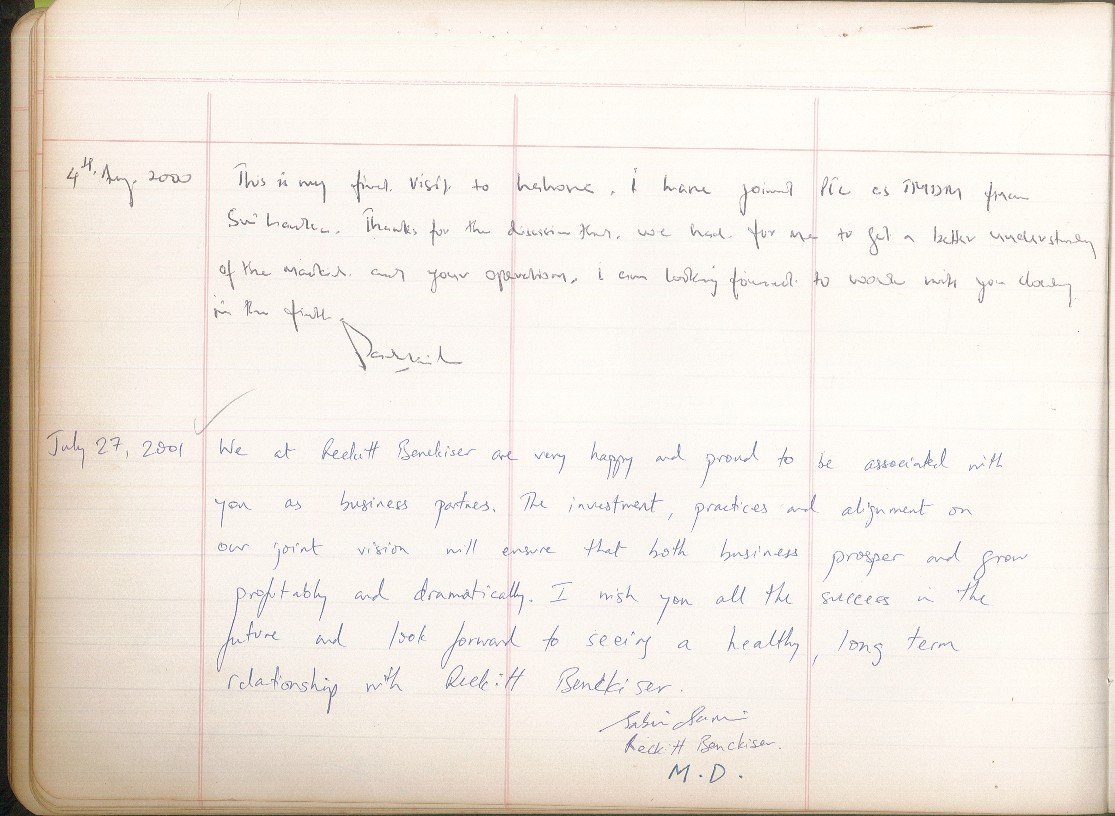 4th Aug. 2000 This is my first visit to Lahore. I have joined as from
Sri Lanka. Thanks for the discussion that we had for me to get a better understanding
of the market and your operations. I am looking forward to work with you closely
in the
July 27, 2001 We at Reckitt Benckiser are very happy and proud to be associated with
you as business partners. The investment, practices and alignment on
our joint vision will ensure that both business prosper and grow
profitably and dramatically. I wish you all the success in the
future and look forward to seeing a healthy, long term
relationship with Reckitt Benckiser.
Sabir Sami
Reckitt Benckiser.
M.D.